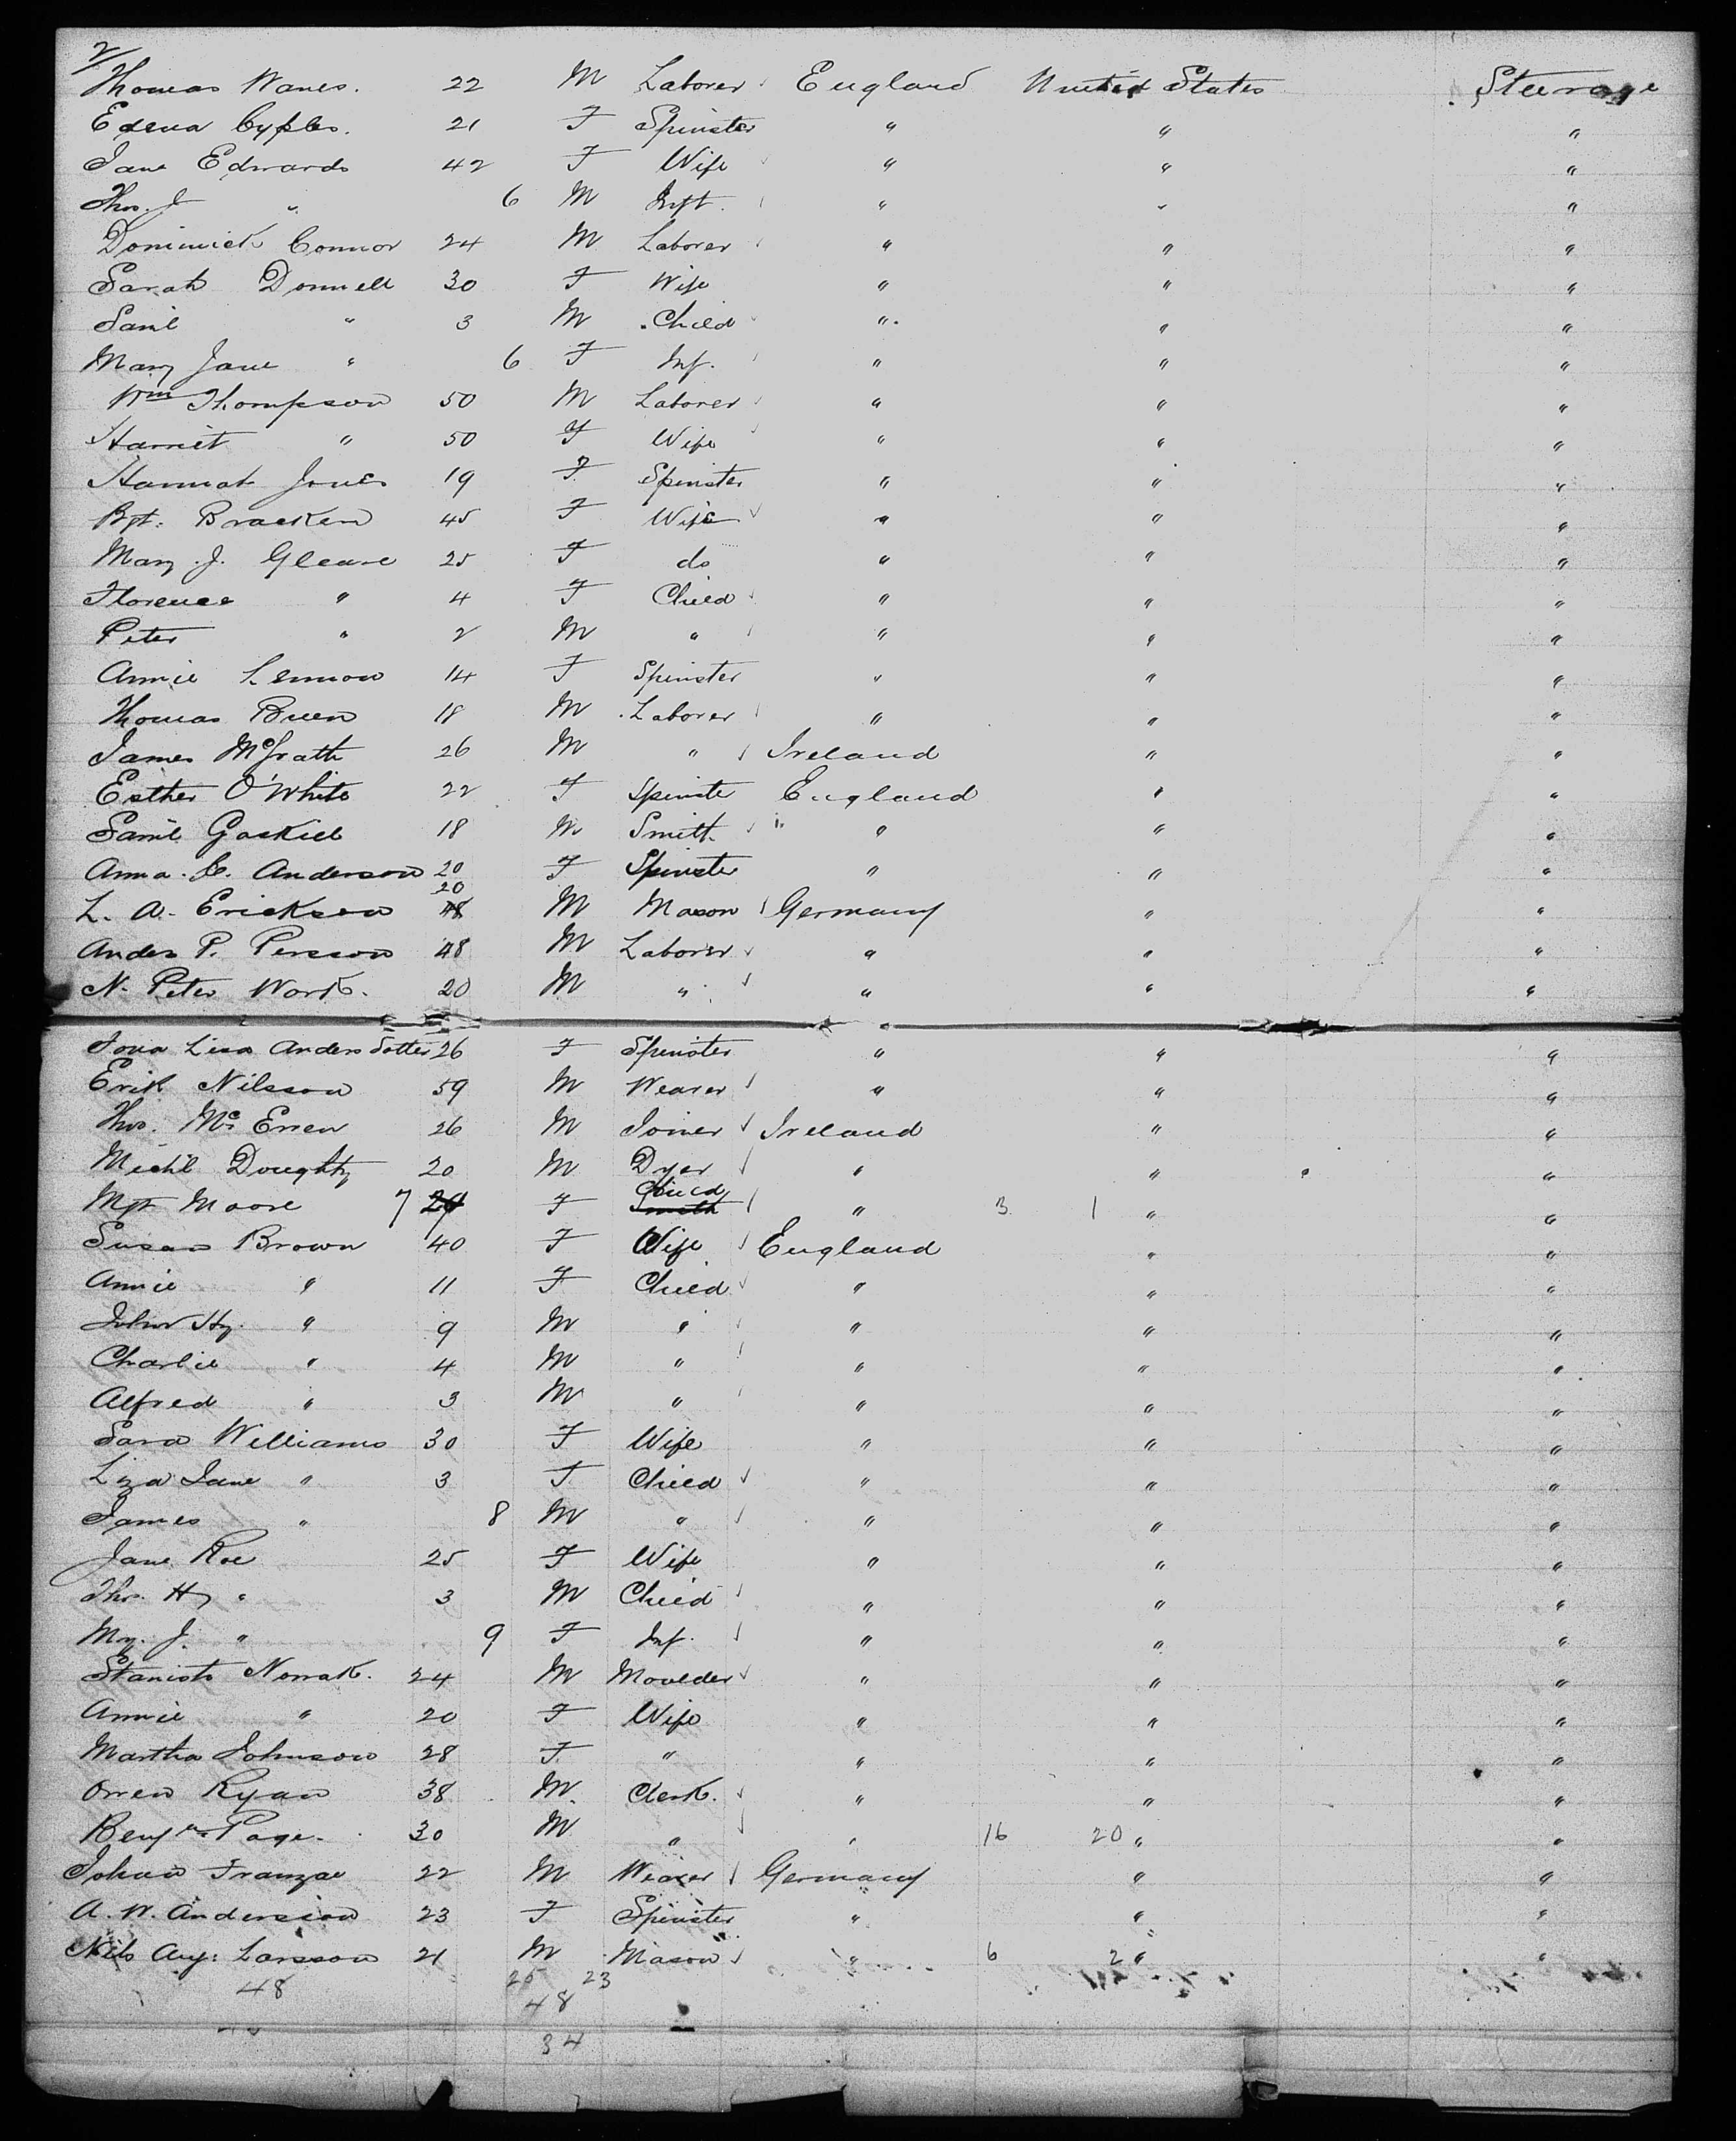 2/
Thomas Wanes. 22 M Laborer England United States Steerage
Edena Cyples. 21 F Spinster " " "
Jane Edwards 42 F Wife " " "
Thos. J " 6 M Inft. " " "
Dominick Connor 24 M Laborer " " "
Sarah Donnell 30 F Wife " " "
Saml " 3 M Child " " "
Mary Jane " 6 F Inf. " " "
Wm Thompson 50 M Laborer " " "
Harriet " 50 F Wife " " "
Hannah Jones 19 F Spinster " " "
Bgt. Bracken 45 F Wife " " "
Mary J. Gleave 25 F do " " "
Florence " 4 F Child " " "
Peter " 2 M " " " "
Annie Lennon 14 F Spinster " " "
Thomas Breen 18 M Laborer " " "
James McGrath 26 M " Ireland " "
Esther O'White 22 F Spinster England " "
Saml Gaskill 18 M Smith " " "
Anna. C. Anderson 20 F Spinster " " "
L. A. Erickson 20 M Mason Germany " "
Anders P. Persson 48 M Laborer " " "
N. Peter Work. 20 M " " " "
Jona Lisa Andersdotter 26 F Spinster " " "
Erik Nilsson 59 M Weaver " " "
Thos. Mc Enen 26 M Joiner Ireland " "
Michl Doughty 20 M Dyer " " "
Mgt Moore 7 F Child " 3 1 " "
Susan Brown 40 F Wife England " "
Annie " 11 F Child " " "
John Hy. " 9 M " " " "
Charlie " 4 M " " " "
Alfred " 3 M " " " "
Sara Williams 30 F Wife " " "
Liza Jane " 3 F Child " " "
James " 8 M " " " "
Jane Roe 25 F Wife " " "
Thos. Hy " 3 M Child " " "
My. J. " 9 F Inf. " " "
Stanists Nowak. 24 M Moulder " " "
Annie " 20 F Wife " " "
Martha Johnson 28 F " " " "
Owen Ryan 38 M Clerk. " " "
Benjn Page. 30 M " " 16 20 " "
Johan Franzae 22 M Weaver Germany " "
A. W. Andersson 23 F Spinster " " "
Nils Aug: Larsson 21 M Mason " 6 2 " "
48 25 23
48
34